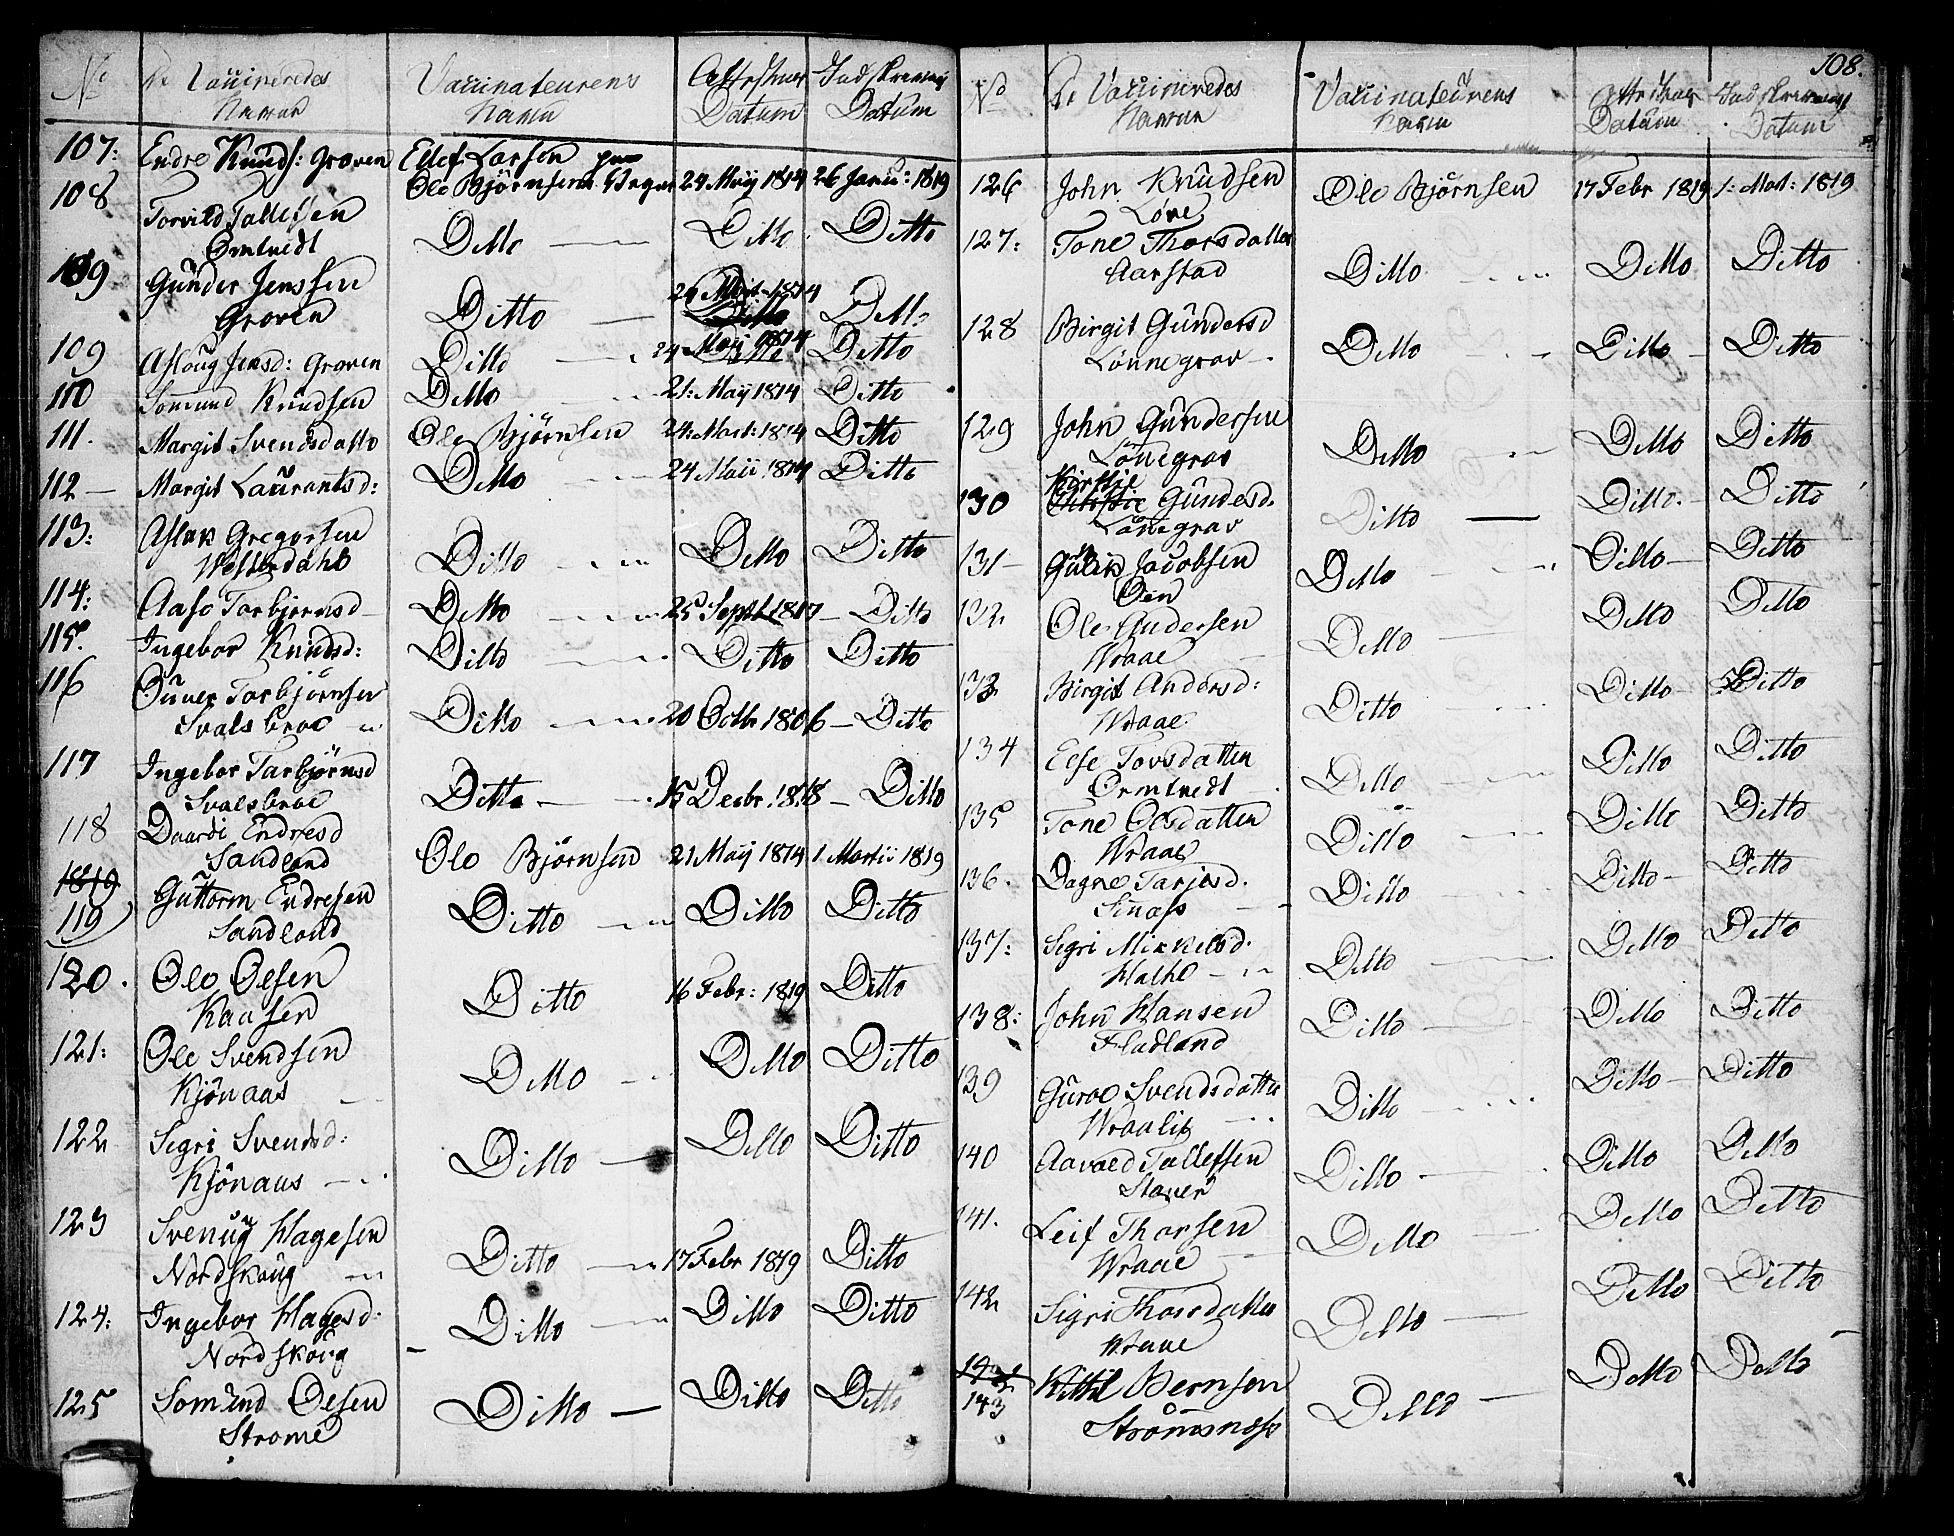 No De Vaccineredes Navne Vaccinateurens Navn Attestens Datum Indskrivnings Datum
107: Endre Knuds: Groven Ellef Larsen
108 Torvild Tallefsen Ormtvedt Ole Björnsens 24 Maij 1814 26 Janu: 1819
Ditto Ditto Ditto
109 Gunder Jenssen Groven Ditto 24 1814 Ditto
109 Aslaug Jensd: Groven Ditto 24 Maij 1814 Ditto
110 Somund Knudsen Ditto 21: Maij 1814 Ditto
111. Margit Svendsdatto Ole Björnsen 24: 1814 Ditto
112 — Margit Laurantsd: Ditto 24 Maii 1814 Ditto
113: Aslak Gregorsen Westerdahl Ditto Ditto Ditto
114: Aase Torbjørnsd Ditto 25 Septb 1817 — Ditto
115. Ingebor Knudsd: Ditto Ditto Ditto
116 Gunder Torbjørnsen Svalsbroe Ditto 20 Octbr 1806 — Ditto
117 Ingebor Tarbjørnsd Svalsbroe Ditto 15 Decbr. 1818 — Ditto
118 Daardi Endresd Sandland Ole Björnsen 21 Maij 1814 1 Martii 1819
1819
119 Guttorm Endresen Sandland Ditto Ditto Ditto
120. Ole Olsen Kaasen Ditto 16 Febr: 1819 Ditto
121: Ole Svendsen Kjönaas Ditto Ditto Ditto
122 Segri Svendsd: Kjönaas Ditto Ditto Ditto
123 Svenug Hagesen Nordskoug Ditto 17 Febr 1819 Ditto
124: Ingebor Hagesd: Nordskoug Ditto Ditto Ditto
125 Somund Oelsen Strome Ditto Ditto Ditto
108.
No De Vaccineredes Navne Vaccinateurens Navn Attestens Datum Indskrivnings Datum
126 John Knudsen Löve Ole Björnsen 17 Febr 1819 1: Mart: 1819
127: Tone Thorsdatter Aarstad Ditto Ditto Ditto
128 Birgit Gundersd Lönnegrav Ditto Ditto Ditto
129 John Gundersen Lönegrav Ditto Ditto Ditto
130 Kirstje Gundesd. Lönegrav Ditto Ditto Ditto
131 — Gulik Jacobsen Oen Ditto Ditto Ditto
132 Ole Andersen Wraae Ditto Ditto Ditto
133 Birgit Andersd: Wraae Ditto Ditto Ditto
134 Else Tovsdatter Ormtvedt Ditto Ditto Ditto
135 Tone Olsdatter Wraae Ditto Ditto Ditto
136. Dagne Tarjesd. Sinnass Ditto Ditto Ditto
137: Segri Mikkelsd. Ditto Ditto Ditto
138: John Hansen Fladland Ditto Ditto Ditto
139 Guroe Svendsdatter Wraalie Ditto Ditto Ditto
140 Aavold Tallefsen Staver Ditto Ditto Ditto
141. Leif Thorsen Wraae Ditto Ditto Ditto
142 Sigri Thorsdatter Wraae Ditto Ditto Ditto
143 Kittil Bernsen Strömsness Ditto Ditto Ditto